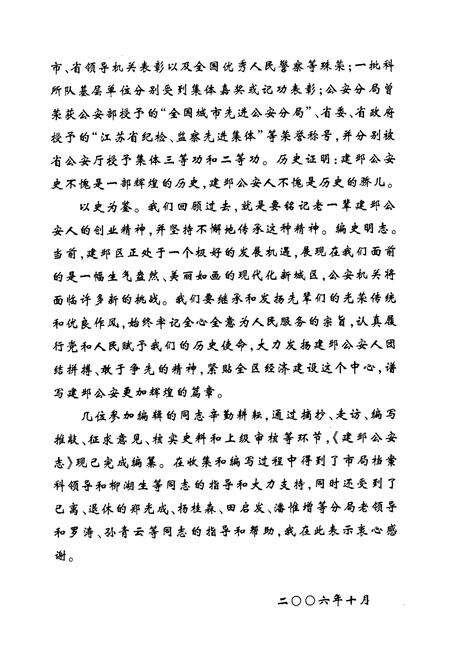 市、省领导机关表彰以及全国优秀人民警察等殊荣；一批科
所队基层单位分别受到集体嘉奖或记功表彰；公安分局曾
荣获公安部授予的“全国城市先进公安分局”、省委、省政府
授予的“江苏省纪检、监察先进集体”等荣誉称号，并分别被
省公安厅授予集体三等功和二等功。历史证明：建邺公安
史不愧是一部辉煌的历史，建邺公安人不愧是历史的骄儿。
以史为鉴。我们回顾过去，就是要铭记老一辈建邺公
安人的创业精神，并坚持不懈地传承这种精神。编史明志。
当前，建邺区正处于一个极好的发展机遇，展现在我们面前
的是一幅生气盎然、美丽如画的现代化新城区，公安机关将
面临许多新的挑战。我们要继承和发扬先辈们的光荣传统
和优良作风，始终牢记全心全意为人民服务的宗旨，认真履
行党和人民赋予我们的历史使命，大力发扬建邺公安人团
结拼搏、敢于争先的精神，紧贴全区经济建设这个中心，谱
写建邺公安更加辉煌的篇章。
几位参加编辑的同志辛勤耕耘，通过摘抄、走访、编写
推敲、征求意见、核实史料和上级审核等环节，《建邺公安
志》现已完成编纂。在收集和编写过程中得到了市局档案
科领导和柳湘生等同志的指导和大力支持，同时还受到了
已离、退休的郑光成、杨桂森、田启发、潘惟增等分局老领导
和罗涛、孙青云等同志的指导和帮助，我在此表示衷心感
谢。
二〇〇六年十月